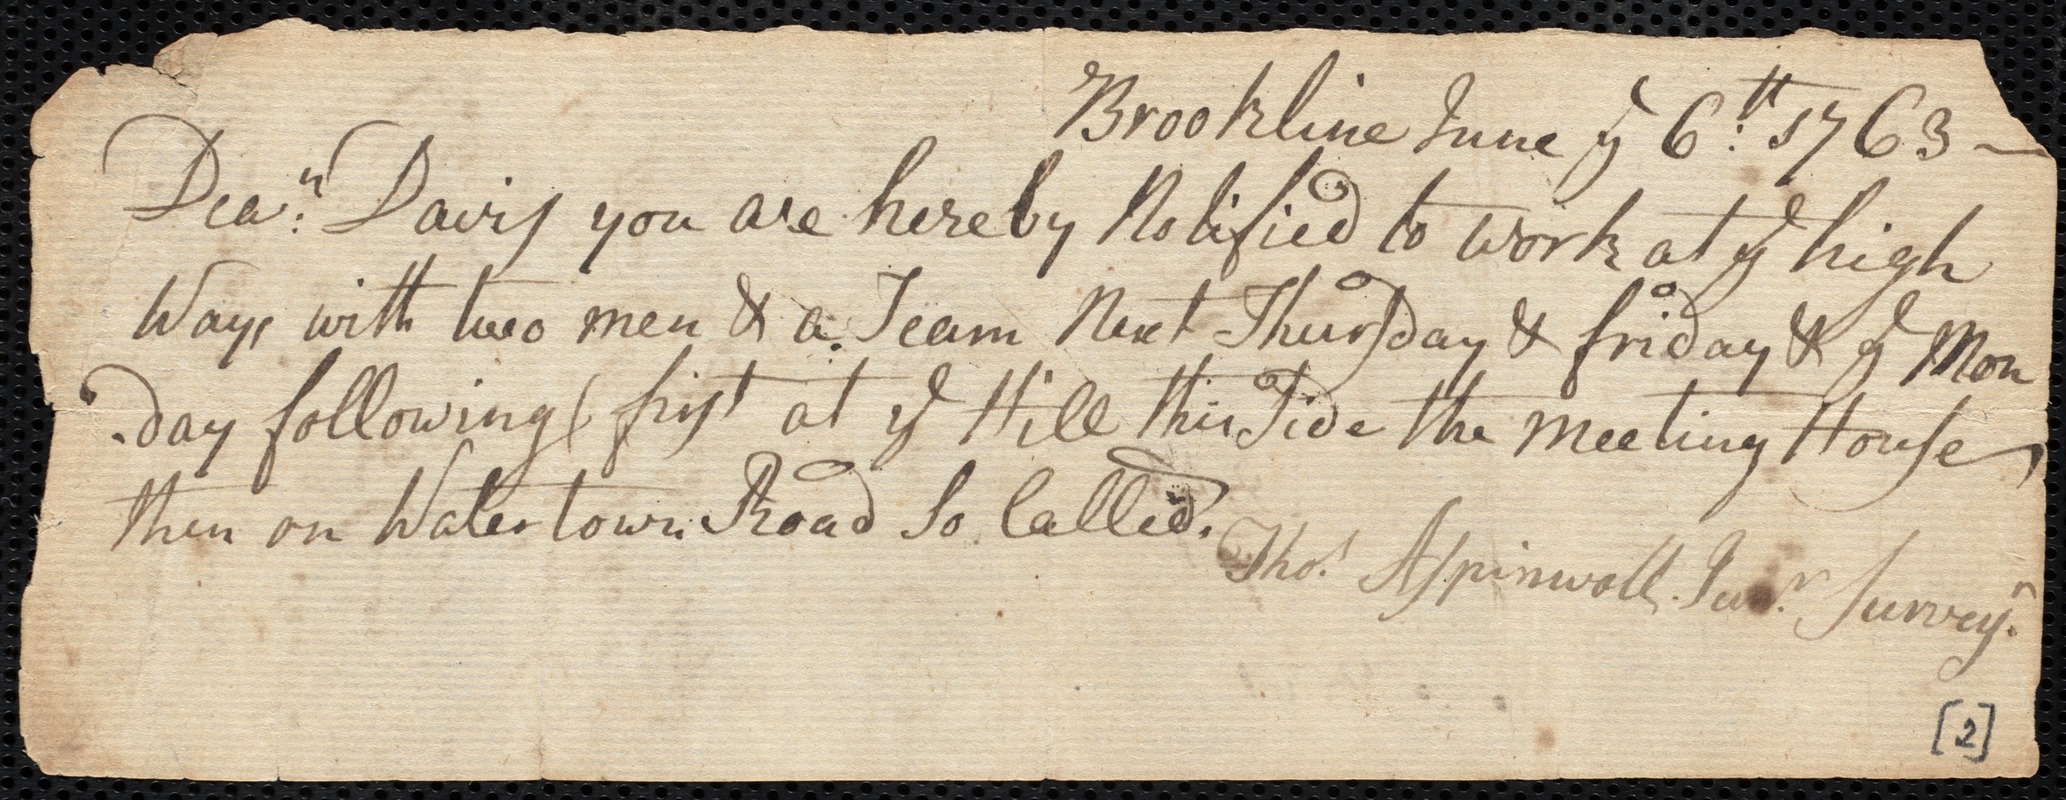 Brookline June ye 6:th 1763 —
Dea:n Davis you are hereby Notified to work at ye high
Ways with two men & a Team Next Thursday & friday & ye Mon
day following ( first at ye Hill this Side the Meeting House
then on Watertown Road So Called.
Thos. Aspinwall Junr. Surveyr.
[2]